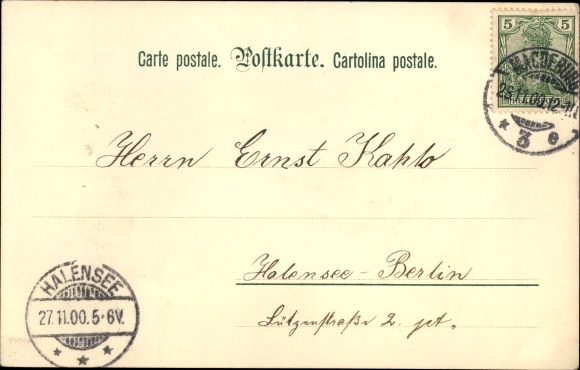 5 5
Carte postale. Postkarte. Cartolina postale.
MAGDEBURG
26.11.00.12-1
* 3 e
Herrn Ernst Kahlo
Halensee-Berlin
Lützenstraße 2. pt.
HALENSEE
27.11.00.5-6V.
* * *